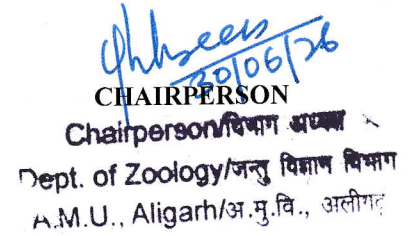 30/06/26
CHAIRPERSON
Chairperson/विभाग अध्यक्ष
Dept. of Zoology/जन्तु विज्ञान विभाग
A.M.U., Aligarh/अ.मु.वि., अलीगढ़